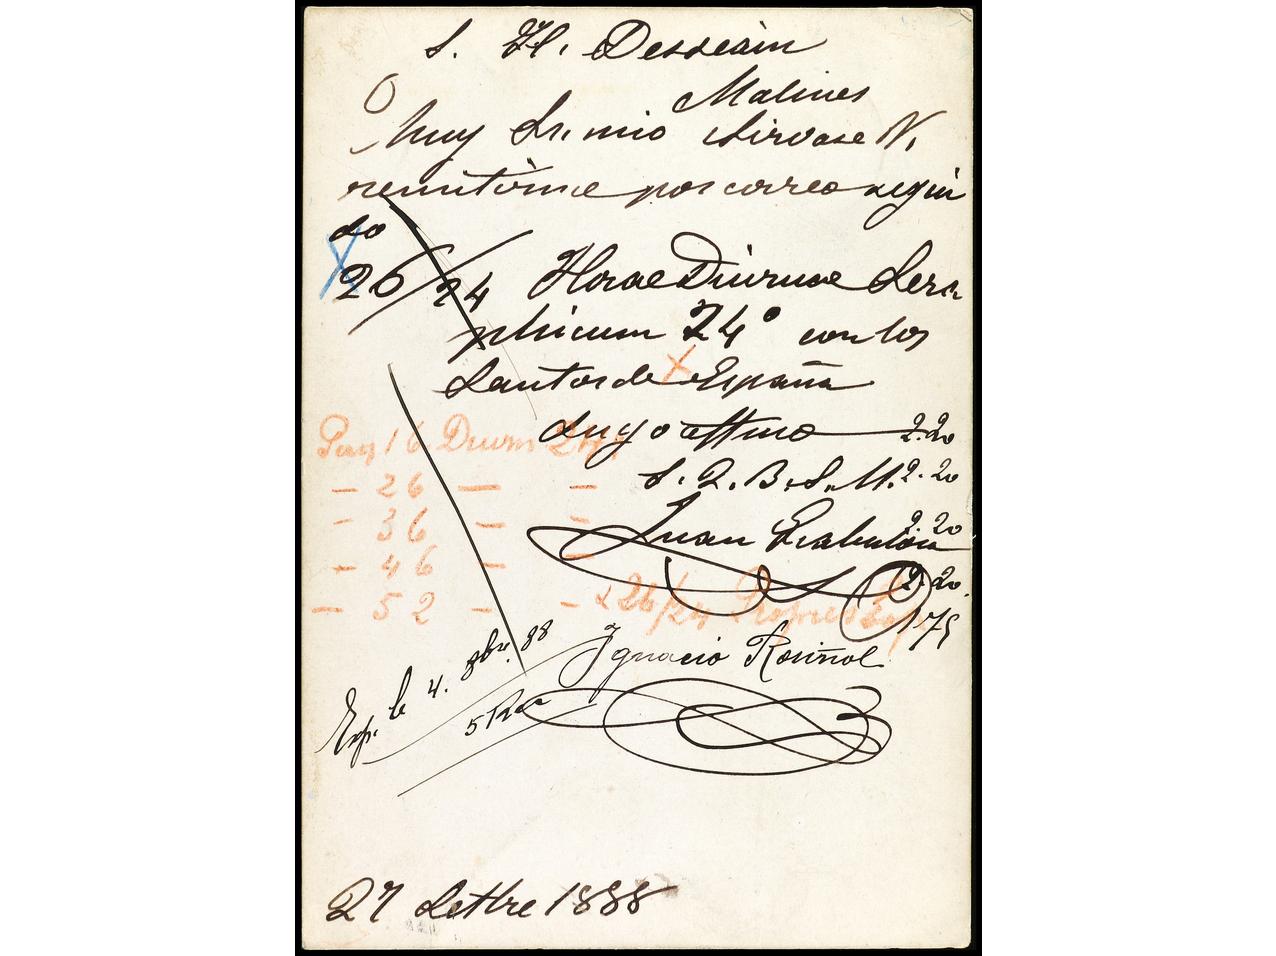 S. H. Dessain
Malines
Muy Sr. mio sirvase V.
remitirme por correo segui
do
26/24 Horae Diurnae Sera
phicum 24º con los
Santos de España
suyo affmo 2.20
S. S. Q. B. S. M. 2.20
Juan 2.20
2.20
175
Ignacio Rosiñol
Paq 16 Diurn 24/
- 26 - -
- 36 - -
- 46 - -
- 52 - - 26/24 Propres Esp
Exp. le 4. 8bre. 88
27 Settbre 1888